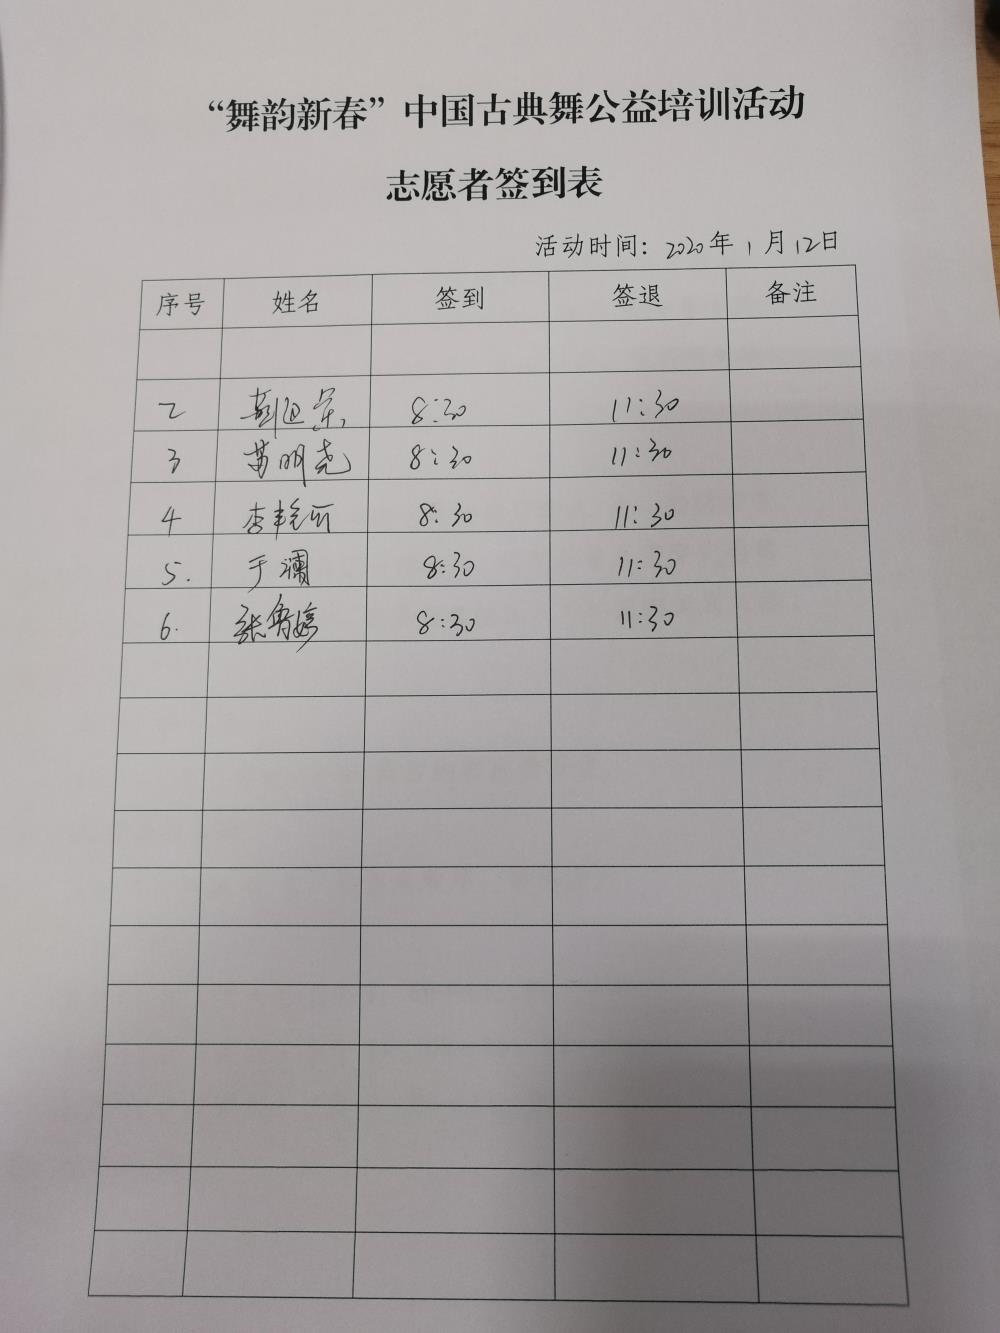 “舞韵新春”中国古典舞公益培训活动
志愿者签到表
活动时间: 2020年 1 月 12日
序号 姓名 签到 签退 备注
2 8:30 11:30
3 苗明尧 8:30 11:30
4 8:30 11:30
5. 于澜 8:30 11:30
6. 张鲁婷 8:30 11:30